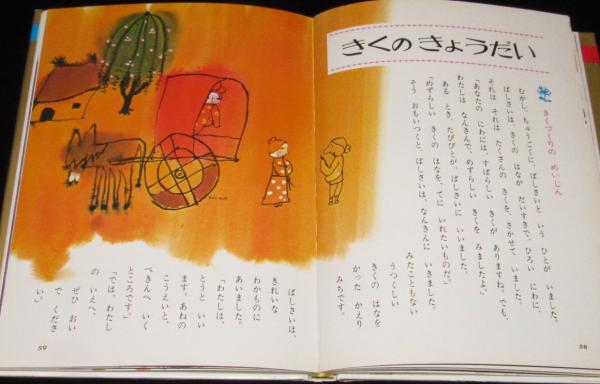 きくの きょうだい
きくづくりの めいじん
むかし、ちゅうごくに、ばしさいと いう ひとが いました。
ばしさいは、きくの はなが だいすきで、ひろい にわに、
それは それは たくさんの きくを、さかせて いました。
「あなたの にわには、すばらしい きくが ありますね。でも、
わたしは なんきんで、めずらしい きくを みましたよ。」
ある とき、たびびとが、ばしさいに いいました。
「めずらしい きくの はなを、てに いれたいものだ。」
そう おもいつくと、ばしさいは、なんきんに いきました。
みたこともない
うつくしい
きくの はなを
かった かえり
みちです。
58
ばしさいは、
きれいな
わかものに
あいました。
「わたしは、
とうと いい
ます。あねの
こうえいと、
ぺきんへ いく
ところです。」
「では、わたし
の いえへ、
ぜひ おい
で くださ
い。」
59